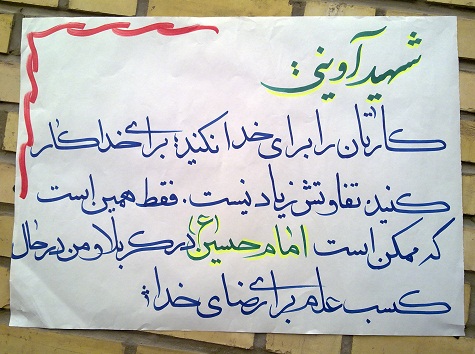 شهید آوینی:
کارتان را برای خدا نکنید؛ برای خدا کار
کنید، تفاوتش زیاد نیست. فقط همین است
که ممکن است امام حسین (ع) در کربلا و من در حال
کسب علم برای رضای خدا!